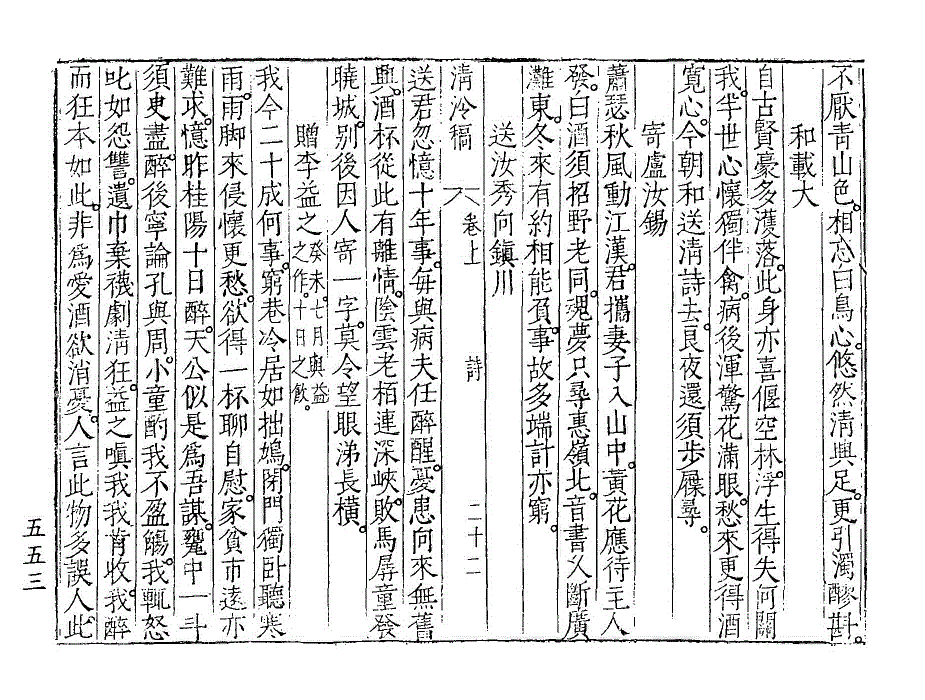 不厭靑山色。相忘白鳥心。悠然淸興足。更引濁醪斟。
和載大
自古賢豪多濩落。此身亦喜偃空林。浮生得失何關
我。半世心懷獨伴禽。病後渾驚花滿眼。愁來更得酒
寬心。今朝和送淸詩去。良夜還須步屧尋。
寄盧汝錫
蕭瑟秋風動江漢。君攜妻子入山中。黃花應待主人
發。白酒須招野老同。魂夢只尋惠嶺北。音書久斷廣
灘東。冬來有約相能負。事故多端計亦窮。
送汝秀向鎭川
淸冷稿 卷上 詩 二十二
送君忽憶十年事。每與病夫任醉醒。憂患向來無舊
興。酒杯從此有離情。陰雲老栢連深峽。敗馬孱童發
曉城。別後因人寄一字。莫令望眼涕長橫。
贈李益之 癸未。七月與益之作。十日之飮。
我今二十成何事。窮巷冷居如拙鳩。閉門獨臥聽寒
雨。雨脚來侵懷更愁。欲得一杯聊自慰。家貧市遠亦
難求。憶昨桂陽十日醉。天公似是爲吾謀。甕中一斗
須臾盡。醉後寧論孔與周。小童酌我不盈觴。我輒怒
叱如怨讐。遺巾棄襪劇淸狂。益之嗔我我肯收。我醉
而狂本如此。非爲愛酒欲消憂。人言此物多誤人。此
五五三